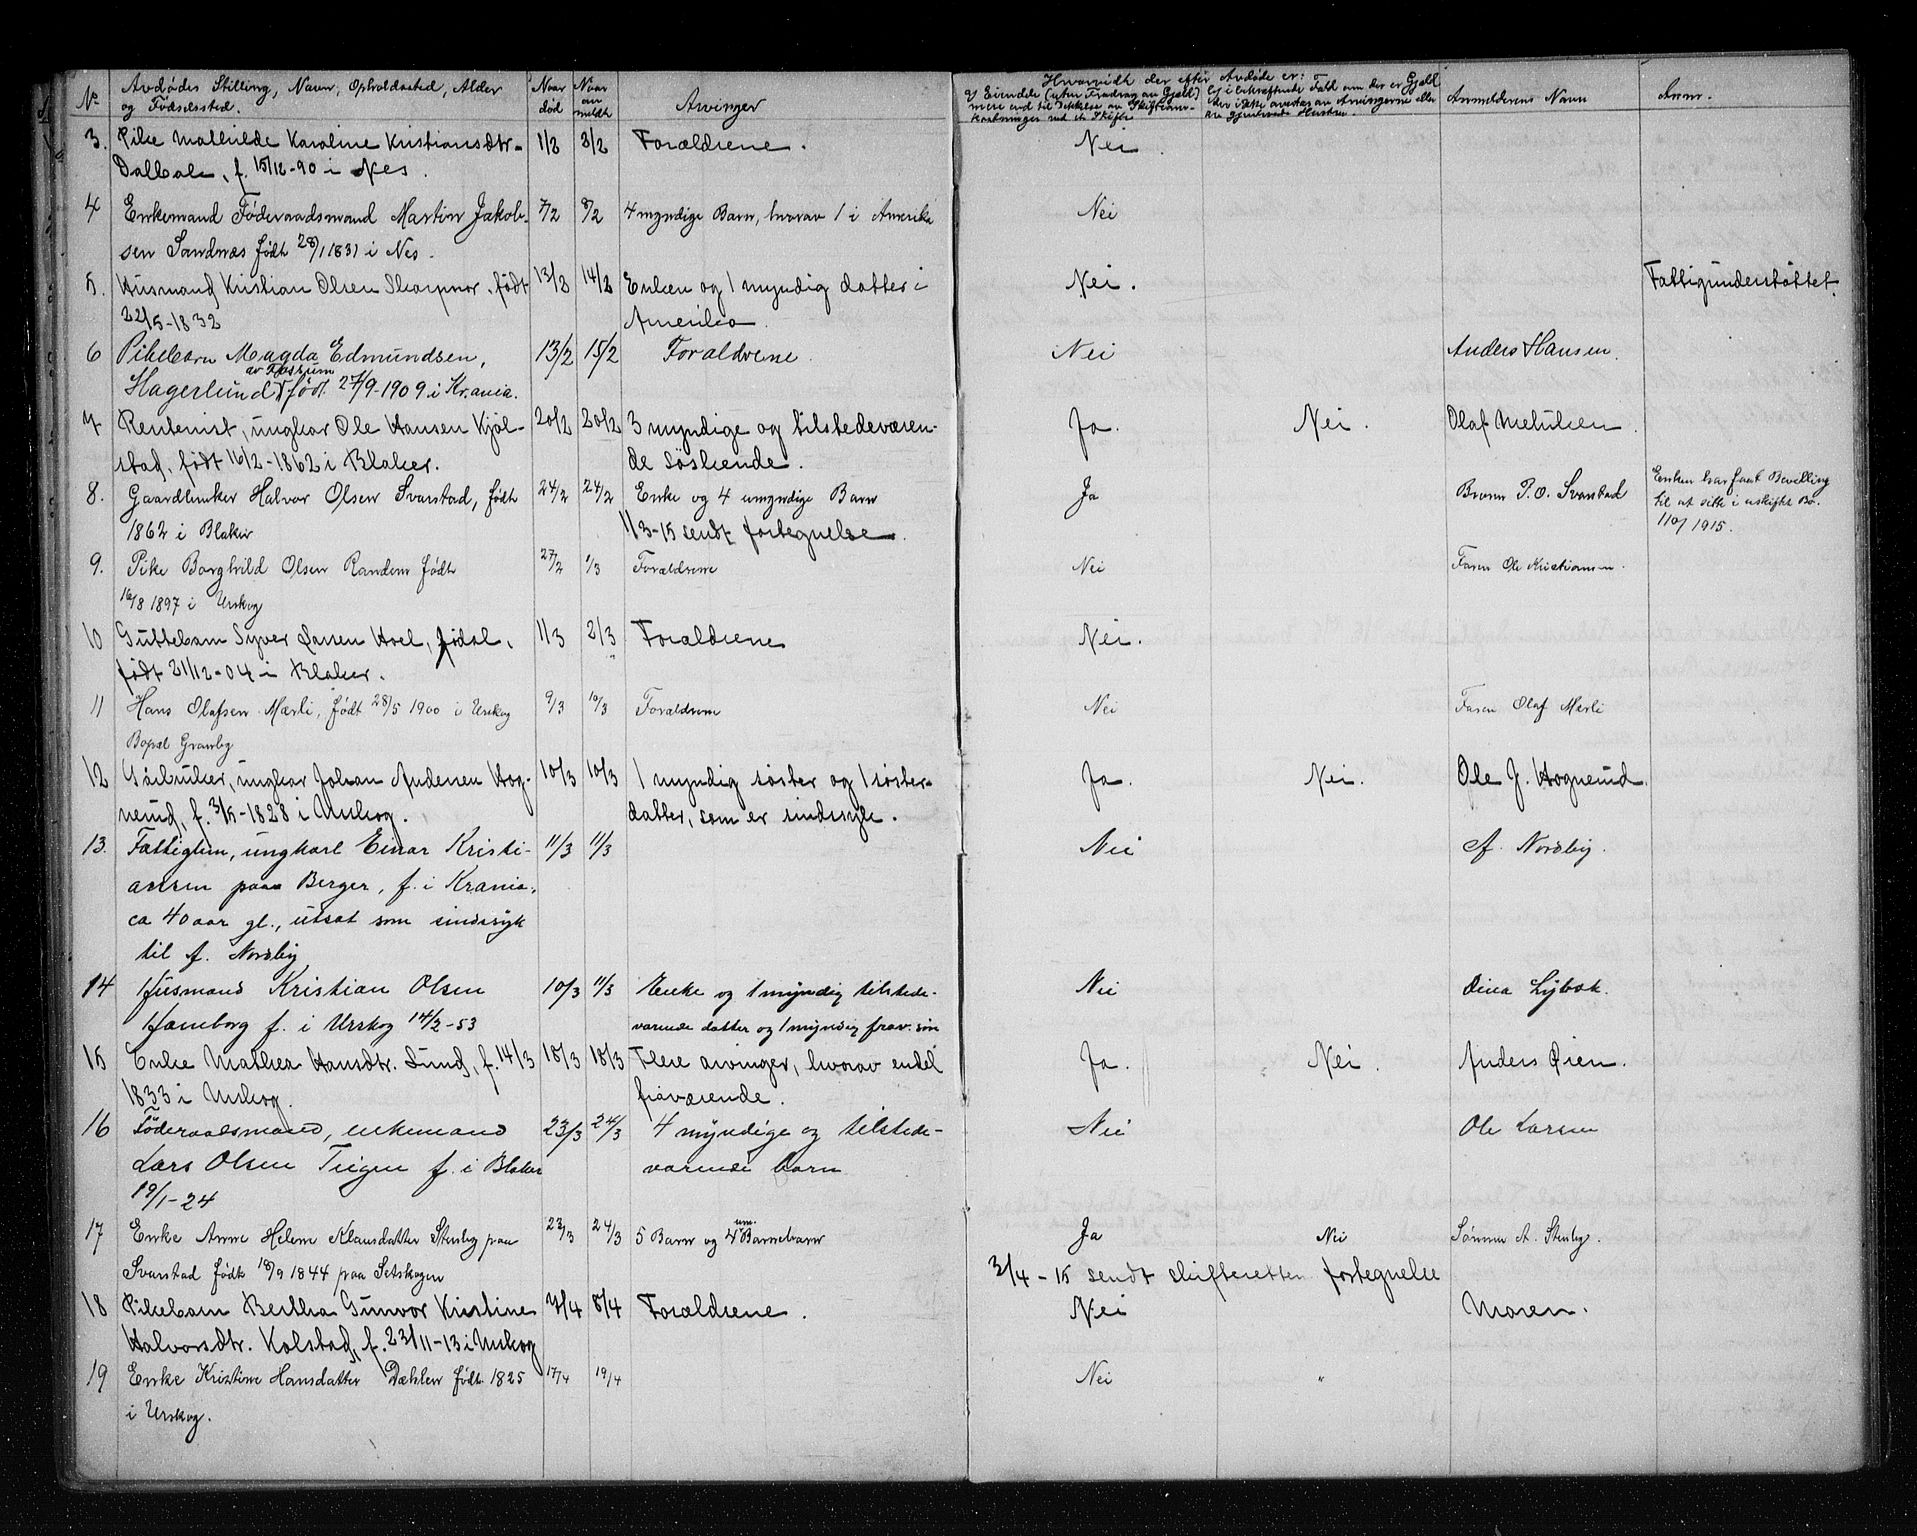 No
Avdødes Stilling, Navn, Opholdssted, Alder
og Fødselssted.
Naar
død
Naar
an
meldt
Arvinger
Hvorvidt der efter Avdøde er:
Anmelderens Navn
Anm.
3. Pike Mathilde Karoline Kristiansdtr. 1/2 3/2 Forældrene. Nei.
Dalbak, f. 15/12-90 i Nes.
4 Enkemand Føderaadsmand Martin Jakob- 7/2 8/2 4 myndige Barn, hvorav 1 i Amerika Nei
sen Sandnæs født 28/1 1831 i Nes.
5. Husmand Kristian Olsen født 13/2 14/2 Enken og 1 myndig datter i Nei. Fattigunderstøttet.
22/5-1832 Amerika.
6 Pikebarn Magda Edmundsen, 13/2 15/2 Forældrene Nei Anders Hansen.
av Fossum
Hagerlund født 27/9-1909 i Kr.ania.
7 Rentenist, ungkar Ole Hansen Kjøl- 20/2 20/2 3 myndige og tilstedeværen- Ja. Nei. Olaf
stad, født 16/2-1862 i Blaker. de søskende.
8. Gaardbruker Halvor Olsen Svarstad, født 24/2 24/2 Enke og 4 umyndige Barn Ja Broren P.O. Svarstad Enken har faat Bevilling
til at sitte i uskiftet Bo.
1862 i Blaker 1/3-15 sendt fortegnelse. 1915.
9. Pike Borghild Olsen Randem født 27/2 1/3 Forældrene Nei Faren Ole Kristiansen.
16/8 1897 i Urskog
10 Guttebarn Syver Larsen Hoel, 1/3 2/3 Forældrene Nei.
født 21/12-04 i Blaker.
11 Hans Olafsen Mærli, født 28/5 1900 i Urskog 9/3 10/3 Forældrene Nei Faren Olaf Mærli
Bopæl Granby
12 Gaardbruker, ungkar Johan Andersen Hog- 10/3 10/3 1 myndig søster og 1 søster- Ja. Nei. Ole J. Hogneud.
neud, f. 3/5-1828 i Urskog. datter, som er sindssyk.
13. Fattiglem, ungkarl Einar Kristi- 11/3 11/3 Nei A. Nordby.
ansen paa Berger, f. i Krania.
ca 40 aar gl., utsat som sindssyk
til A. Nordby
14 Husmand Kristian Olsen 10/3 11/3 Enke og 1 myndig tilstede- Nei Dina Lybæk.
Haneborg f. i Urskog 14/2-53 værende datter og 1 myndig frav. søn
15 Enke Mathea Hansdtr. Lund, f. 14/3 18/3 18/3 Flere arvinger, hvorav endel Ja. Nei. Anders Øien.
1833 i Urskog. fraværende.
16 Føderaadsmand, enkemand 23/3 24/3 4 myndige og tilstede- Nei Ole Larsen
Lars Olsen Teigen f. i Blaker værende barn
19/1-24
um.
17 Enke Anne Helene Klausdatter Stenby paa 23/3 24/3 5 Barn og 4 Barnebarn Ja Nei Sønnen A. Stenby.
Svarstad født 18/9 1844 paa Setskogen 3/4-15 sendt skifteretten fortegnelse
18 Pikebarn Bertha Gunvor Kristine 7/4 8/4 Forældrene. Nei Moren.
Halvorsdtr. Kolstad, f. 23/11-13 i Urskog
19 Enke Kristine Hansdatter Dæhlen født 1825 17/4 19/4 Nei "
i Urskog.